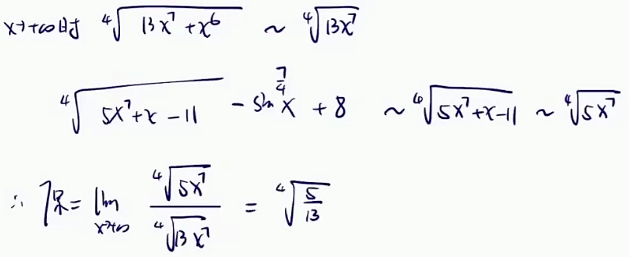 x→+∞时 ∜(13x⁷+x⁶) ~ ∜(13x⁷)
∜(5x⁷+x-11) - sin^(7/4) x + 8 ~ ∜(5x⁷+x-11) ~ ∜(5x⁷)
∴ 原 = lim_(x→+∞) ∜(5x⁷) / ∜(13x⁷) = ∜(5/13)